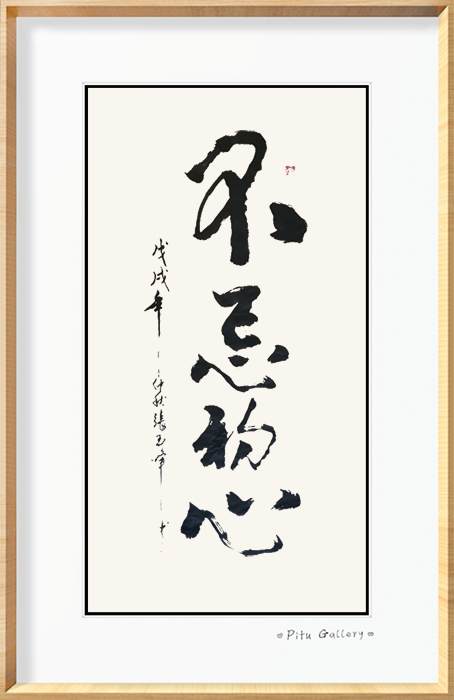 不忘初心
戊戌年仲秋張玉峯书
Pitu Gallery